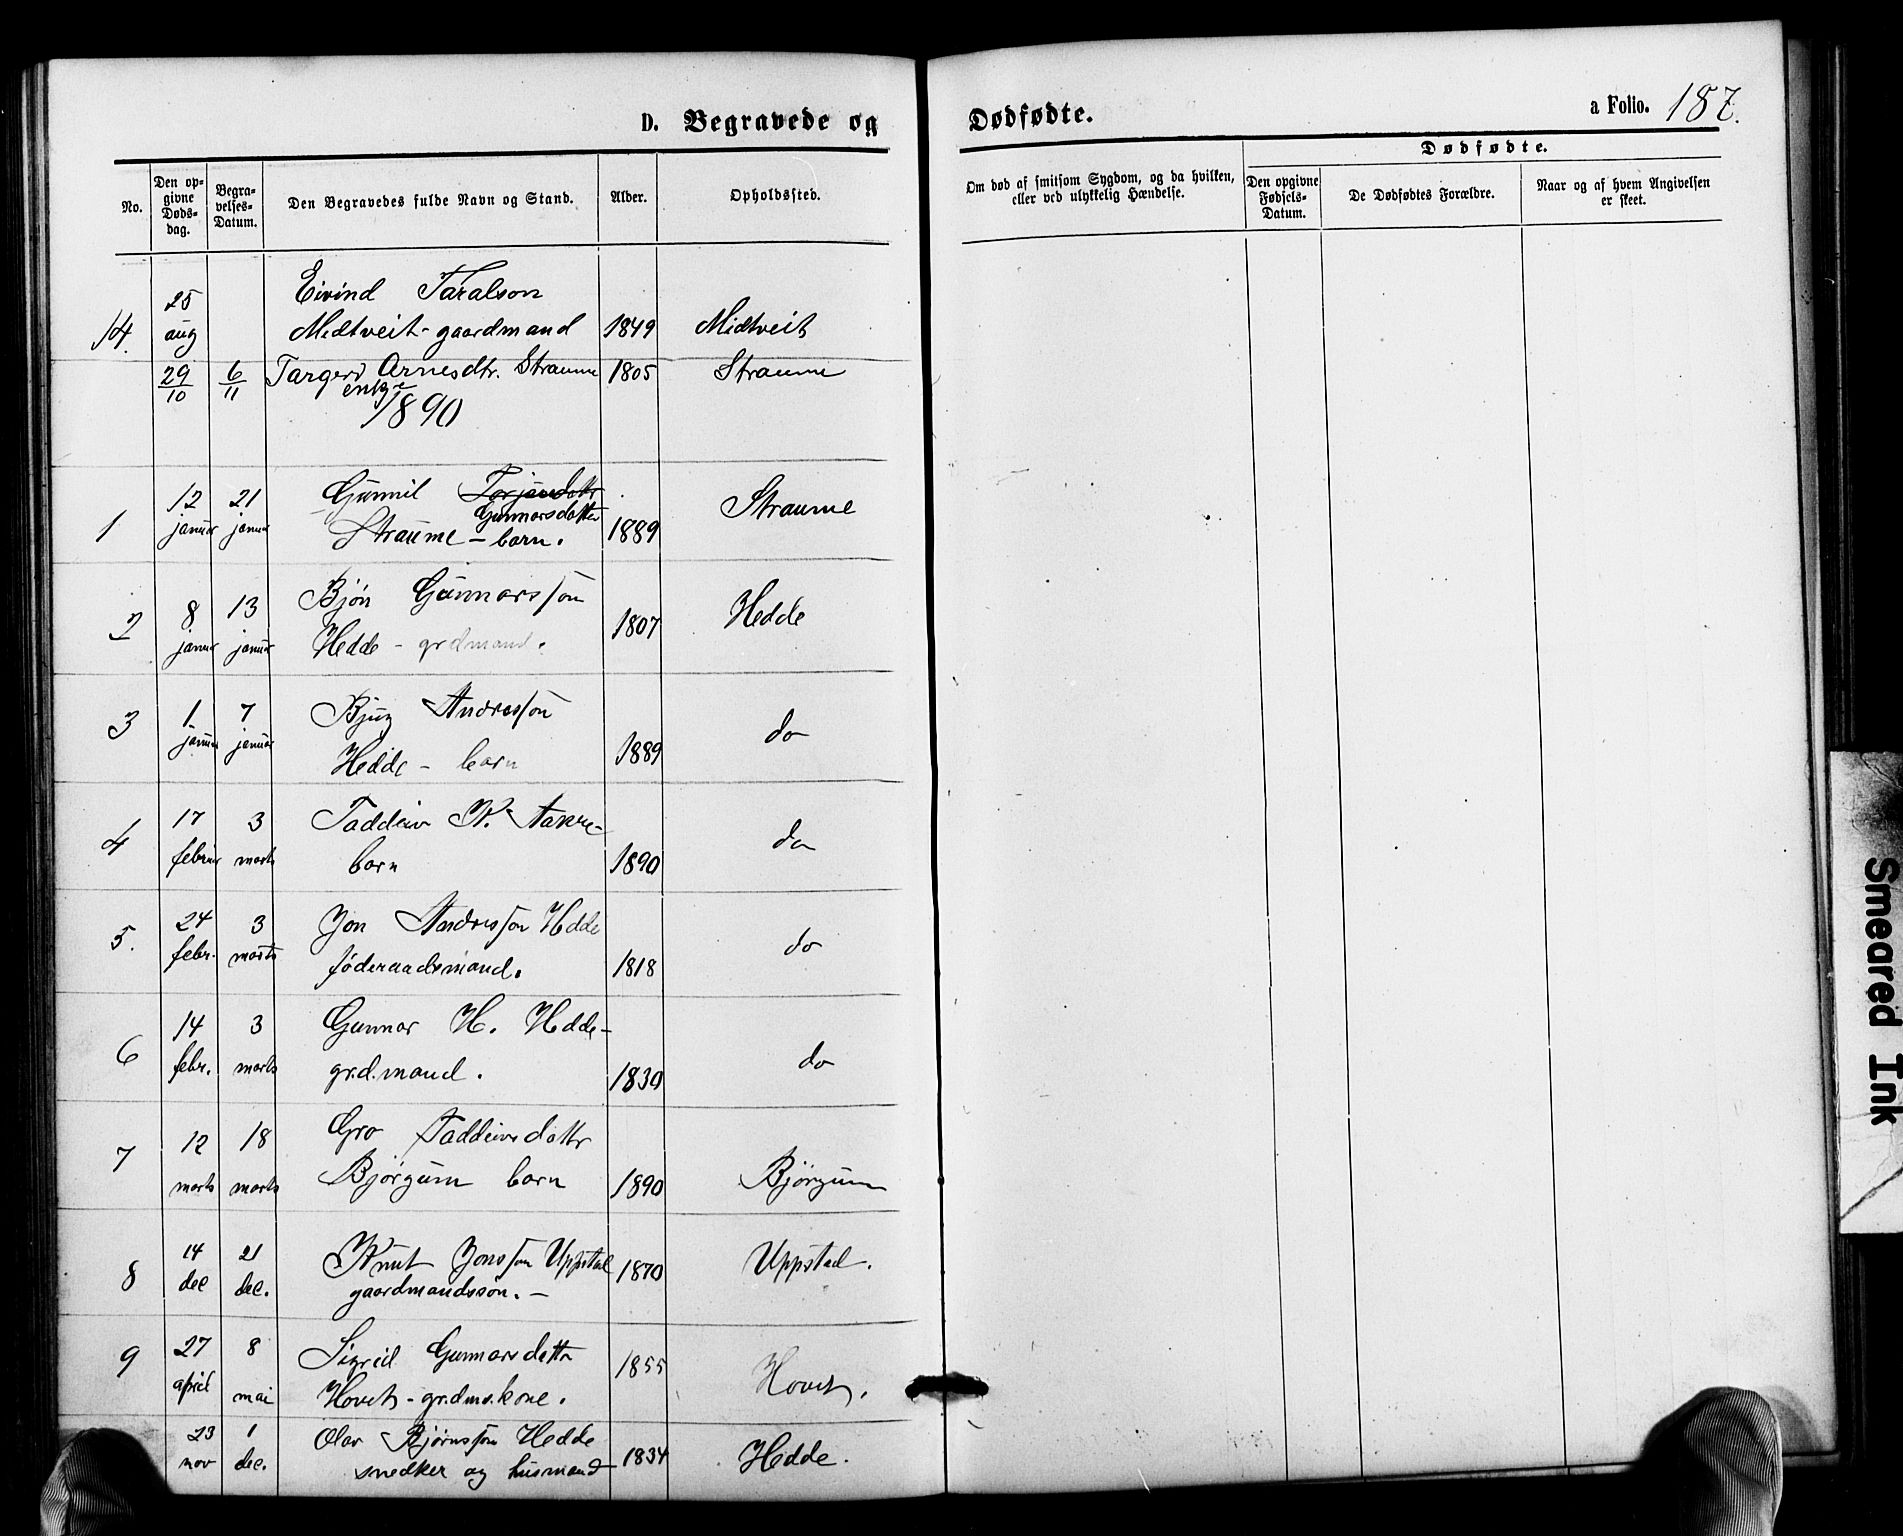 D. Begravede og Dødfødte.
a Folio. 187.
No.
Den opgivne Dødsdag.
Begravelses-Datum.
Den Begravedes fulde Navn og Stand.
Alder.
Opholdssted.
Om død af smitsom Sygdom, og da hvilken, eller ved ulykkelig Hændelse.
Dødfødte.
Den opgivne Fødsels-Datum.
De Dødfødtes Forældre.
Naar og af hvem Angivelsen er skeet.
14. 25 aug Eivind Taralson
Midtveit - gaardmand 1849 Midtveit
29/10 6/11 Targerd Arnesdtr. Straume 1805 Straume
enke
1890
1 12 januar 21 januar Gunnil Torjusdottr
Gunnarsdotter
Straume - barn. 1889 Straume
2 8 januar 13 januar Bjøn Gunnarsson
Hedde - grdmand. 1807 Hedde
3 1 januar 7 januar Bjug Andresson
Hedde - barn 1889 do
4 17 februar 3 marts Taddeiv K. Aakre -
barn 1890 do
5. 24 febr. 3 marts Jon Andresson Hedde
føderaadsmand. 1818 do
6 14 febr. 3 marts Gunnar H. Hedde -
gr.d.mand. 1830 do
7 12 marts 18 marts Gro Taddeivsdottr
Bjørgum barn 1890 Bjørgum
8 14 dec 21 dec. Knut Jonsson Uppstad
gaardmandssøn. - 1870 Uppstad.
9 27 april 8 mai Sigrid Gunnarsdottr
Hovet - gr.dms.kone. 1855 Hovet.
23 nov 1 dec. Olav Bjørnsson Hedde
snedker og husmand 1834 Hedde.
Smeared Ink